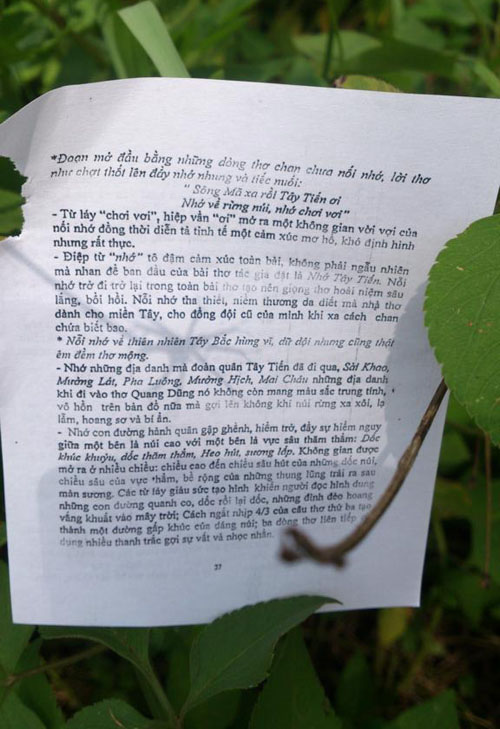 *Đoạn mở đầu bằng những dòng thơ chan chưa nối nhớ, lời thơ
như chợt thốt lên đầy nhớ nhung và tiếc nuối:
" Sông Mã xa rồi Tây Tiến ơi
Nhớ về rừng núi, nhớ chơi vơi"
- Từ láy "chơi vơi", hiệp vần "ơi" mở ra một không gian vời vợi của
nỗi nhớ đồng thời diễn tả tinh tế một cảm xúc mơ hồ, khó định hình
nhưng rất thực.
- Điệp từ "nhớ" tô đậm cảm xúc toàn bài, không phải ngẫu nhiên
mà nhan đề ban đầu của bài thơ tác giả đặt là Nhớ Tây Tiến. Nỗi
nhớ trở đi trở lại trong toàn bài thơ tạo nên giọng thơ hoài niệm sâu
lắng, bồi hồi. Nỗi nhớ tha thiết, niềm thương da diết mà nhà thơ
dành cho miền Tây, cho đồng đội cũ của mình khi xa cách chan
chứa biết bao.
* Nỗi nhớ về thiên nhiên Tây Bắc hùng vĩ, dữ dội nhưng cũng thật
êm đềm thơ mộng.
- Nhớ những địa danh mà đoàn quân Tây Tiến đã đi qua, Sài Khao,
Mường Lát, Pha Luông, Mường Hịch, Mai Châu những địa danh
khi đi vào thơ Quang Dũng nó không còn mang màu sắc trung tính,
vô hồn trên bản đồ nữa mà gợi lên không khí núi rừng xa xôi, lạ
lẫm, hoang sơ và bí ẩn.
- Nhớ con đường hành quân gập ghềnh, hiểm trở, đầy sự hiểm nguy
giữa một bên là núi cao với một bên là vực sâu thăm thẳm: Dốc
khúc khuỷu, dốc thăm thẳm, Heo hút, sương lấp. Không gian được
mở ra ở nhiều chiều: chiều cao đến chiều sâu hút của những dốc núi,
chiều sâu của vực thẳm, bề rộng của những thung lũng trải ra sau
màn sương. Các từ láy giàu sức tạo hình khiến người đọc hình dung
những con đường quanh co, dốc rồi lại dốc, những đỉnh đèo hoang
vắng khuất vào mây trời; Cách ngắt nhịp 4/3 của câu thơ thứ ba tạo
thành một đường gấp khúc của dáng núi; ba dòng thơ liên tiếp
dụng nhiều thanh trắc gợi sự vất vả nhọc nhằn.
37